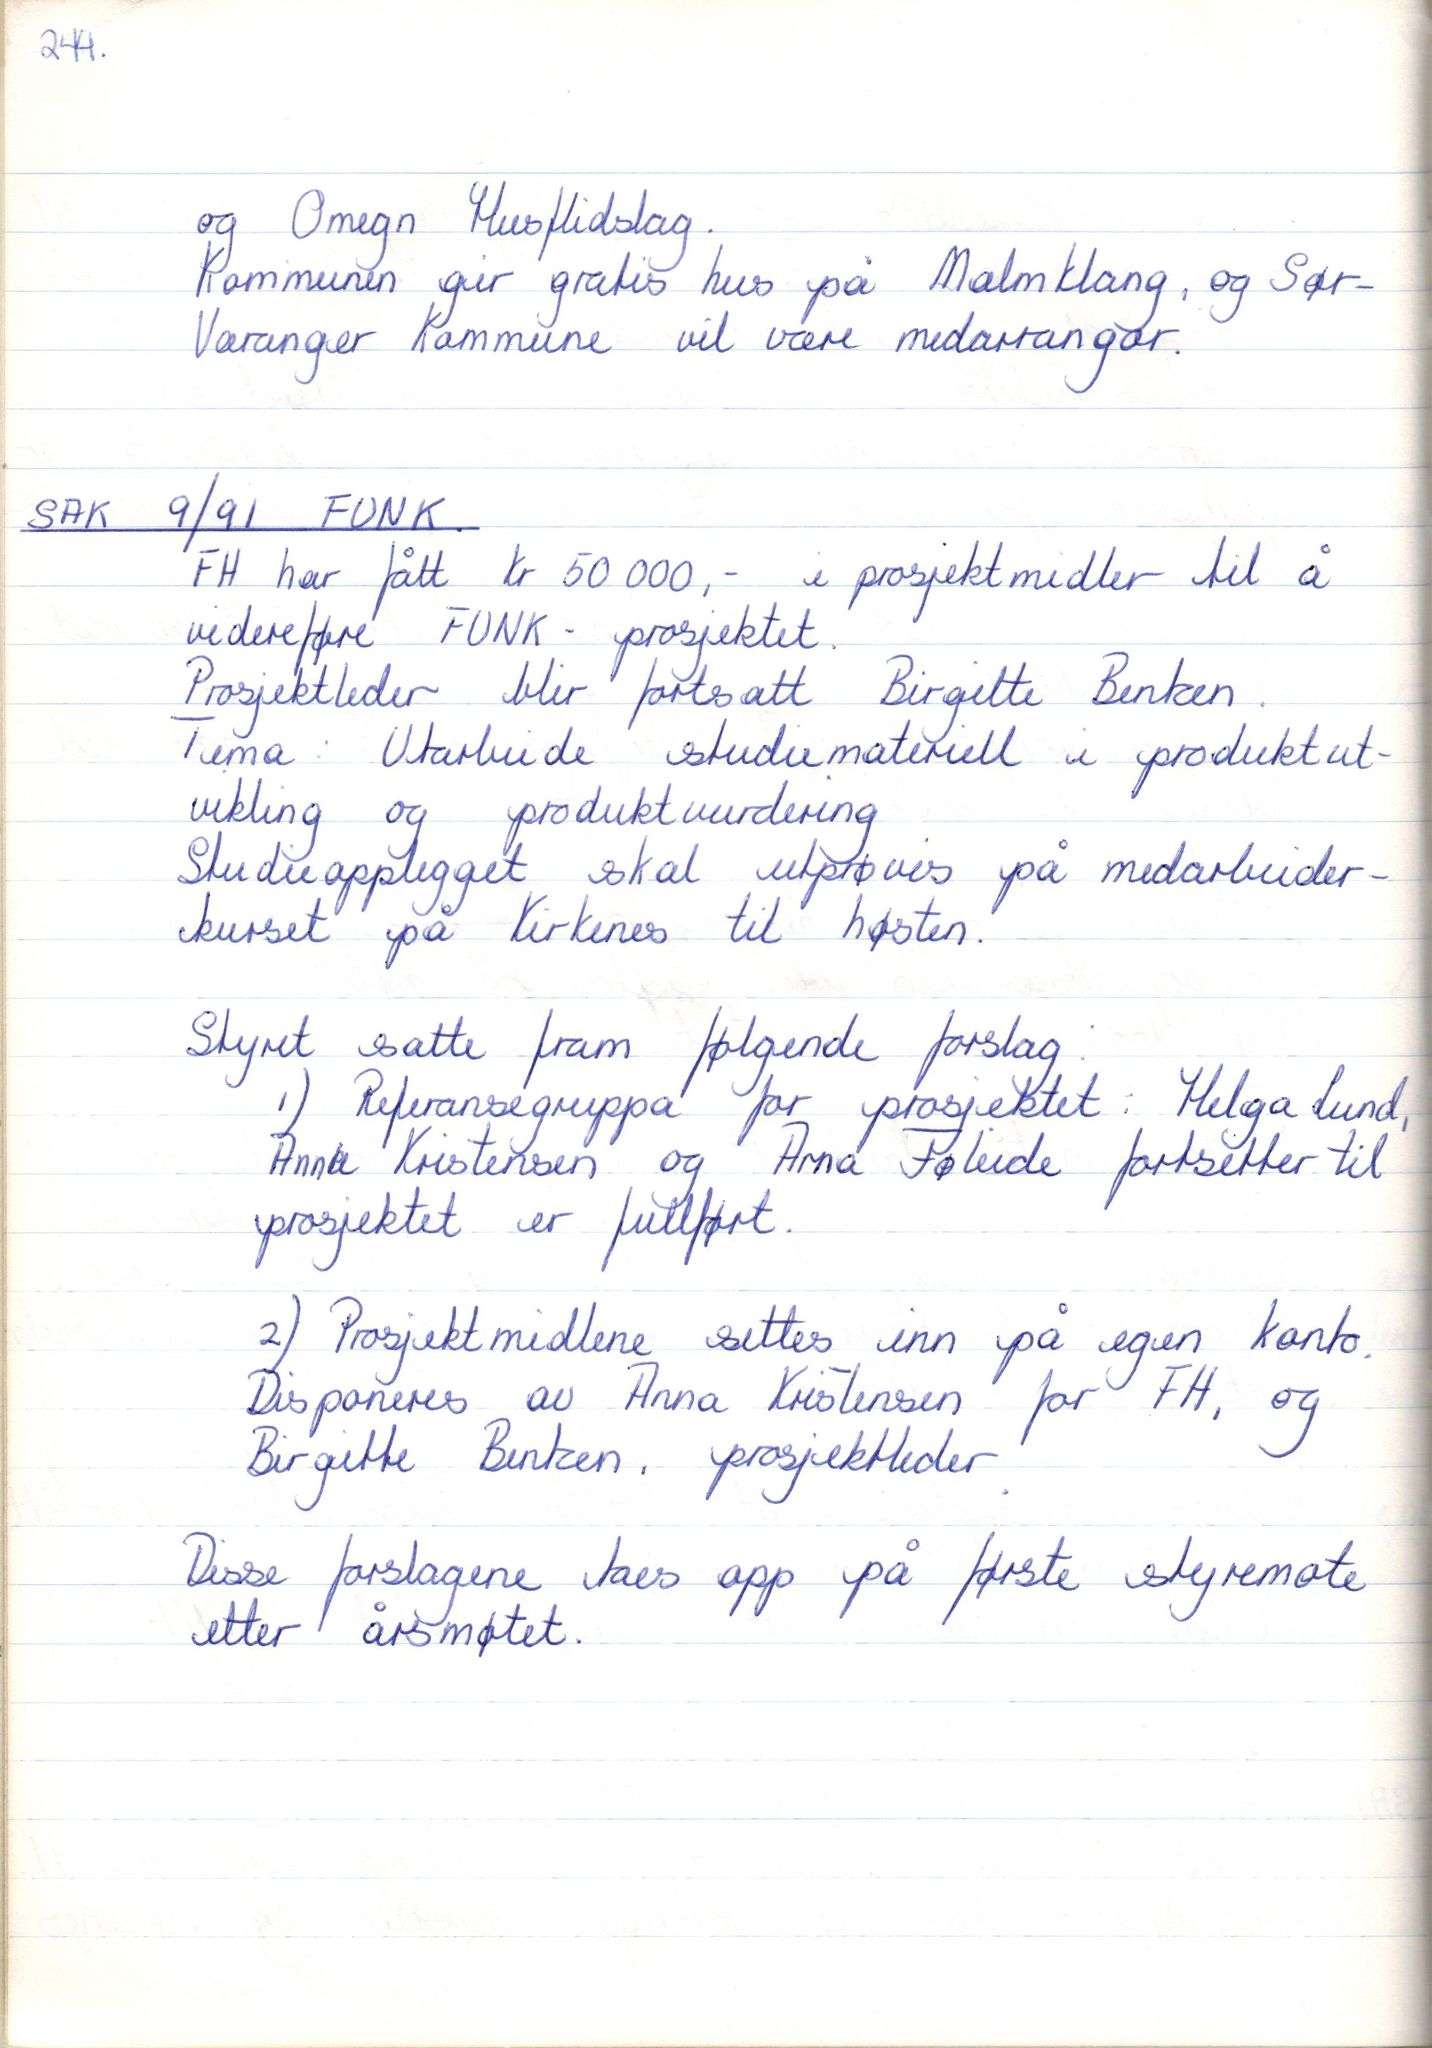 244.
og Omegn Husflidslag.
Kommunen gir gratis hus på Malmklang, og Sør-
Varanger Kommune vil være medarrangør.
SAK 9/91 FUNK.
FH har fått kr 50 000,- i prosjektmidler til å
videreføre FUNK - prosjektet.
Prosjektleder blir fortsatt Birgitte Bentzen.
Tema: Utarbeide studiemateriell i produktut-
vikling og produktvurdering
Studieopplegget skal utprøves på medarbeider-
kurset på Kirkenes til høsten.
Styret satte fram følgende forslag:
1) Referansegruppa for prosjektet: Helga Lund,
Anna Kristensen og Arna Føleide fortsetter til
prosjektet er fullført.
2) Prosjektmidlene settes inn på egen konto.
Disponeres av Anna Kristensen for FH, og
Birgitte Bentzen, prosjektleder.
Disse forslagene taes opp på første styremøte
etter årsmøtet.